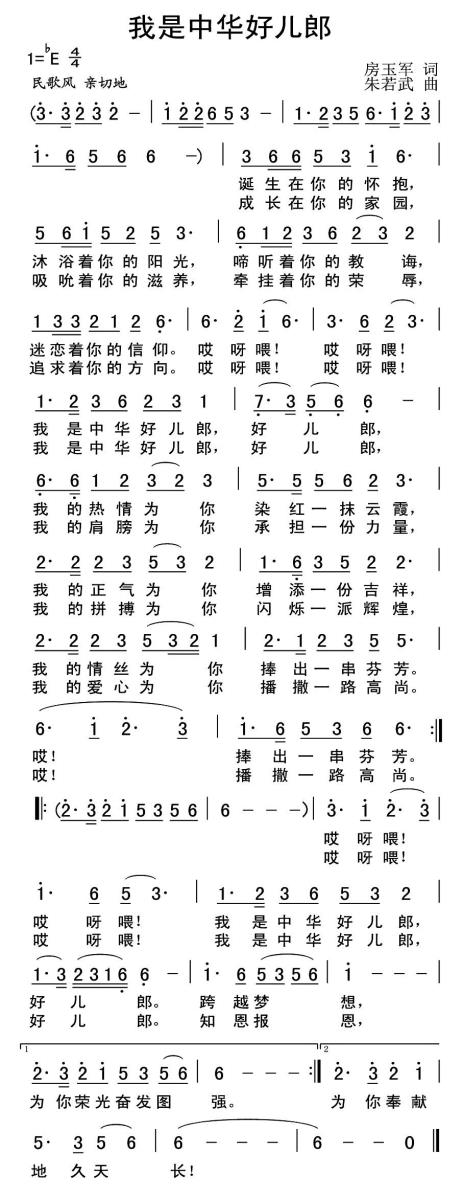 我是中华好儿郎
1=♭E 4/4
房玉军 词
民歌风 亲切地
朱若武 曲
(3· 3 2 3 2 - | 1 1 2 2 6 5 3 - | 1· 2 3 5 6· 1 2 3 |
1· 6 5 6 6 -) | 3 6 6 5 3 1 6· |
诞生在你的怀抱,
成长在你的家园,
5 6 1 5 2 5 3· | 6 1 2 3 6 2 3 2 |
沐浴着你的阳光, 啼听着你的教诲,
吸吮着你的滋养, 牵挂着你的荣辱,
1 3 3 2 1 2 6· | 6· 2 1 6· | 3· 6 2 3· |
迷恋着你的信仰。哎呀喂! 哎呀喂!
追求着你的方向。哎呀喂! 哎呀喂!
1· 2 3 6 2 3 1 | 7· 3 5 6 6 - |
我是中华好儿郎, 好儿郎,
我是中华好儿郎, 好儿郎,
6· 6 1 2 3 2 3 | 5· 5 5 6 2 3· |
我的热情为你 染红一抹云霞,
我的肩膀为你 承担一份力量,
2· 2 2 3 5 3 2 | 1· 6 3 5 2 2· |
我的正气为你 增添一份吉祥,
我的拼搏为你 闪烁一派辉煌,
2· 2 2 3 5 3 2 1 | 2· 1 2 3 5 5· |
我的情丝为你 捧出一串芬芳。
我的爱心为你 播撒一路高尚。
6· 1 2· 3 | 1· 6 5 3 6 6· :‖
哎! 捧出一串芬芳。
哎! 播撒一路高尚。
‖: (2· 3 2 1 5 3 5 6 | 6 - - -) | 3· 1 2· 3 |
哎呀喂!
哎呀喂!
1· 6 5 3· | 1· 2 3 6 5 3 2 |
哎呀喂! 我是中华好儿郎,
哎呀喂! 我是中华好儿郎,
1· 3 2 3 1 6 6 - | 1· 6 5 3 5 6 | 1 - - - |
好儿郎。跨越梦想,
好儿郎。知恩报恩,
1 2
2· 3 2 1 5 3 5 6 | 6 - - - :‖ 2· 3 2 1 |
为你荣光奋发图强。 为你奉献
5· 3 5 6 | 6 - - - | 6 - - 0 ‖
地久天长!